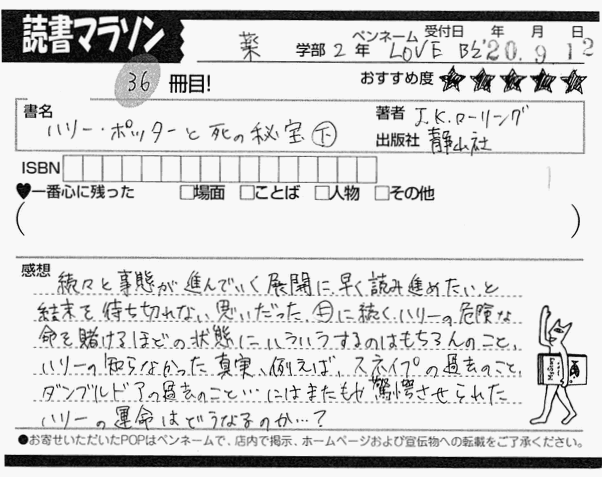 読書マラソン
薬 学部 2 年 ペンネーム LOVE B'z 受付日 '20年 9月 12日
36 冊目! おすすめ度 ★★★★★
書名 ハリー・ポッターと死の秘宝㊦ 著者 J.K.ローリング
出版社 静山社
ISBN
♥一番心に残った □場面 □ことば □人物 □その他
( )
感想
続々と事態が進んでいく展開に早く読み進めたいと
結末を待ち切れない思いだった。㊤に続くハリーの危険な
命を賭けるほどの状態にハラハラするのはもちろんのこと、
ハリーの知らなかった真実、例えば、スネイプの過去のこと、
ダンブルドアの過去のこと…にはまたもや驚愕させられた
ハリーの運命はどうなるのか…?
●お寄せいただいたPOPはペンネームで、店内で掲示、ホームページおよび宣伝物への転載をご了承ください。